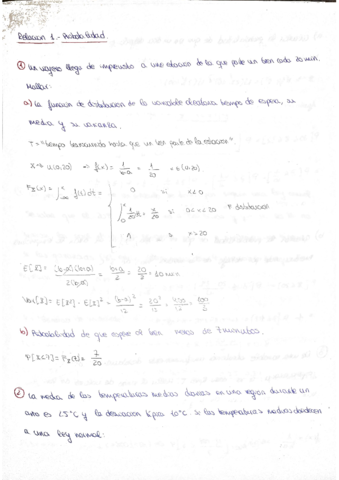 Relación 1.- Probabilidad
① Un viajero llega de improviso a una estación de la que parte un tren cada 20 min.
Hallar:
a) La función de distribución de la variable aleatoria tiempo de espera, su
media y su varianza.
T = "tiempo transcurrido hasta que un tren parte de la estación"
X → U(0,20) ⇒ f(x) = 1/b-a = 1/20 x ∈ (0,20)
F_X(x) = ∫_{-∞}^{x} f(t) dt =
0 si x≤0
∫_0^x 1/20 dt = x/20 si 0<x<20 F distribución
1 si x≥20
E[X] = (b-a)(b+a)/2(b-a) = b+a/2 = 20/2 = 10 min
Var[X] = E[X²] - E[X]² = (b-a)²/12 = 20²/12 = 400/12 =
b) Probabilidad de que espere el tren menos de 7 minutos.
P[X≤7] = F_X(7) = 7/20
② La media de las temperaturas medias diarias en una región durante un
año es 25°C y la desviación típica 10°C si las temperaturas medias obedecen
a una ley normal: